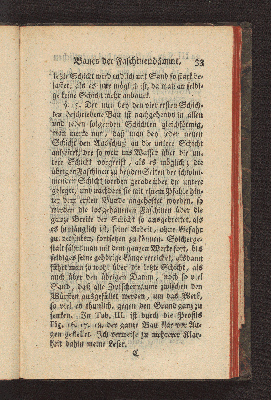 Baues der Faschinendämme. 33
letzte Schicht wird endlich mit Sand so stark be-
lastet, als es nur möglich ist, da man an selbi-
ge keine Schicht mehr anbauet.
§. 5. Der nun bey den vier ersten Schich-
ten beschriebene Bau ist nachgehends in allen
und jeden folgenden Schichten gleichförmig,
man merke nur, daß man bey jeder neuen
Schicht den Anschuß an die untere Schicht
der so weit ins Wasser über die un-
tere Schicht vorgreift, als es möglich, die
übrigen Faschinen zu beyden Seiten der schwim-
menden Schicht werden gerade über die untere
gelegt, und nachdem sie mit einem Pfahle hin-
ter dem ersten Bunde angeheftet worden, so
werden die losgebundenen Faschinen über die
ganze Breite der Schicht so ausgebreitet, als
es hinlänglich ist, seine Arbeit, ohne Gefahr
zu versinken, fortsetzen zu können. Solcherge-
stalt fähret man mit dem ganzen Werke fort, bis
selbiges seine gehörige Länge erreichet, alsdann
führet man so wohl über die letzte Schicht, als
auch über den übrigen Damm, noch so viel
Sand, daß alle Zwischenräume zwischen den
Würsten ausgefüllet werden, um das Werk,
so viel es thunlich, gegen den Grund ganz zu
senken. In Tab. III. ist durch die Profils
Fig. 16. 17. 18. der ganze Bau klar vor Au-
gen gestellet. Ich verweise zu mehrerer Klar-
heit dahin meine Leser.
C